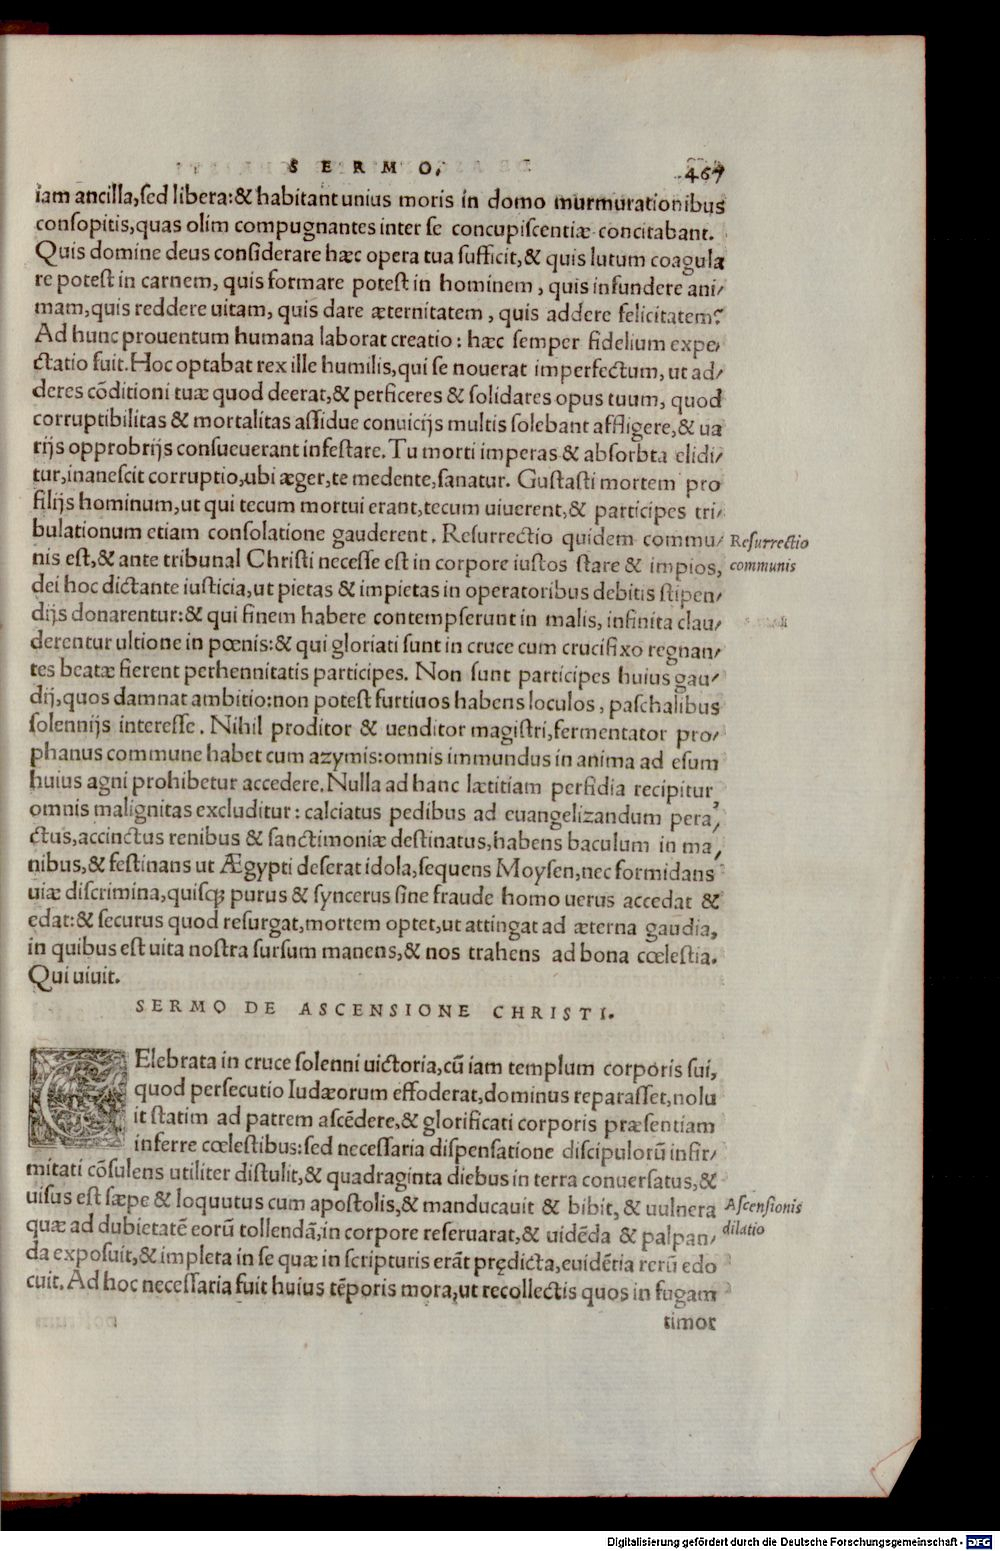 SERMO. 467
iam ancilla,sed libera:& habitant unius moris in domo murmurationibus
consopitis,quas olim compugnantes inter se concupiscentiæ concitabant.
Quis domine deus considerare hæc opera tua sufficit,& quis lutum coagula
re potest in carnem, quis formare potest in hominem, quis infundere ani/
mam,quis reddere uitam, quis dare æternitatem, quis addere felicitatem?
Ad hunc prouentum humana laborat creatio: hæc semper fidelium expe/
ctatio fuit. Hoc optabat rex ille humilis,qui se nouerat imperfectum, ut ad/
deres cõditioni tuæ quod deerat,& perficeres & solidares opus tuum, quod
corruptibilitas & mortalitas assidue conuicijs multis solebant affligere,& ua
rijs opprobrijs consueuerant infestare. Tu morti imperas & absorbta elidi/
tur,inanescit corruptio,ubi æger,te medente,sanatur. Gustasti mortem pro
filijs hominum,ut qui tecum mortui erant,tecum uiuerent,& participes tri/
bulationum etiam consolatione gauderent. Resurrectio quidem commu/
nis est,& ante tribunal Christi necesse est in corpore iustos stare & impios,
dei hoc dictante iusticia,ut pietas & impietas in operatoribus debitis stipen/
dijs donarentur:& qui finem habere contempserunt in malis, infinita clau/
derentur ultione in pœnis:& qui gloriati sunt in cruce cum crucifixo regnan/
tes beatæ fierent perhennitatis participes. Non sunt participes huius gau/
dij,quos damnat ambitio:non potest furtiuos habens loculos, paschalibus
solennijs interesse. Nihil proditor & uenditor magistri,fermentator pro/
phanus commune habet cum azymis:omnis immundus in anima ad esum
huius agni prohibetur accedere. Nulla ad hanc lætitiam perfidia recipitur
omnis malignitas excluditur: calciatus pedibus ad euangelizandum pera/
ctus,accinctus renibus & sanctimoniæ destinatus,habens baculum in ma/
nibus,& festinans ut Ægypti deserat idola,sequens Moysen,nec formidans
uiæ discrimina,quisq; purus & syncerus sine fraude homo uerus accedat &
edat:& securus quod resurgat,mortem optet,ut attingat ad æterna gaudia,
in quibus est uita nostra sursum manens,& nos trahens ad bona cœlestia.
Qui uiuit.
Resurrectio
communis
SERMO DE ASCENSIONE CHRISTI.
CElebrata in cruce solenni uictoria,cũ iam templum corporis sui,
quod persecutio Iudæorum effoderat,dominus reparasset,nolu
it statim ad patrem ascẽdere,& glorificati corporis præsentiam
inferre cœlestibus:sed necessaria dispensatione discipulorũ infir/
mitati cõsulens utiliter distulit,& quadraginta diebus in terra conuersatus,&
uisus est sæpe & loquutus cum apostolis,& manducauit & bibit, & uulnera
quæ ad dubietatẽ eorũ tollendã,in corpore reseruarat,& uidẽda & palpan/
da exposuit,& impleta in se quæ in scripturis erãt prędicta,euidẽtia rerũ edo
cuit. Ad hoc necessaria fuit huius tẽporis mora,ut recollectis quos in fugam
timor
Ascensionis
dilatio
Digitalisierung gefördert durch die Deutsche Forschungsgemeinschaft - DFG